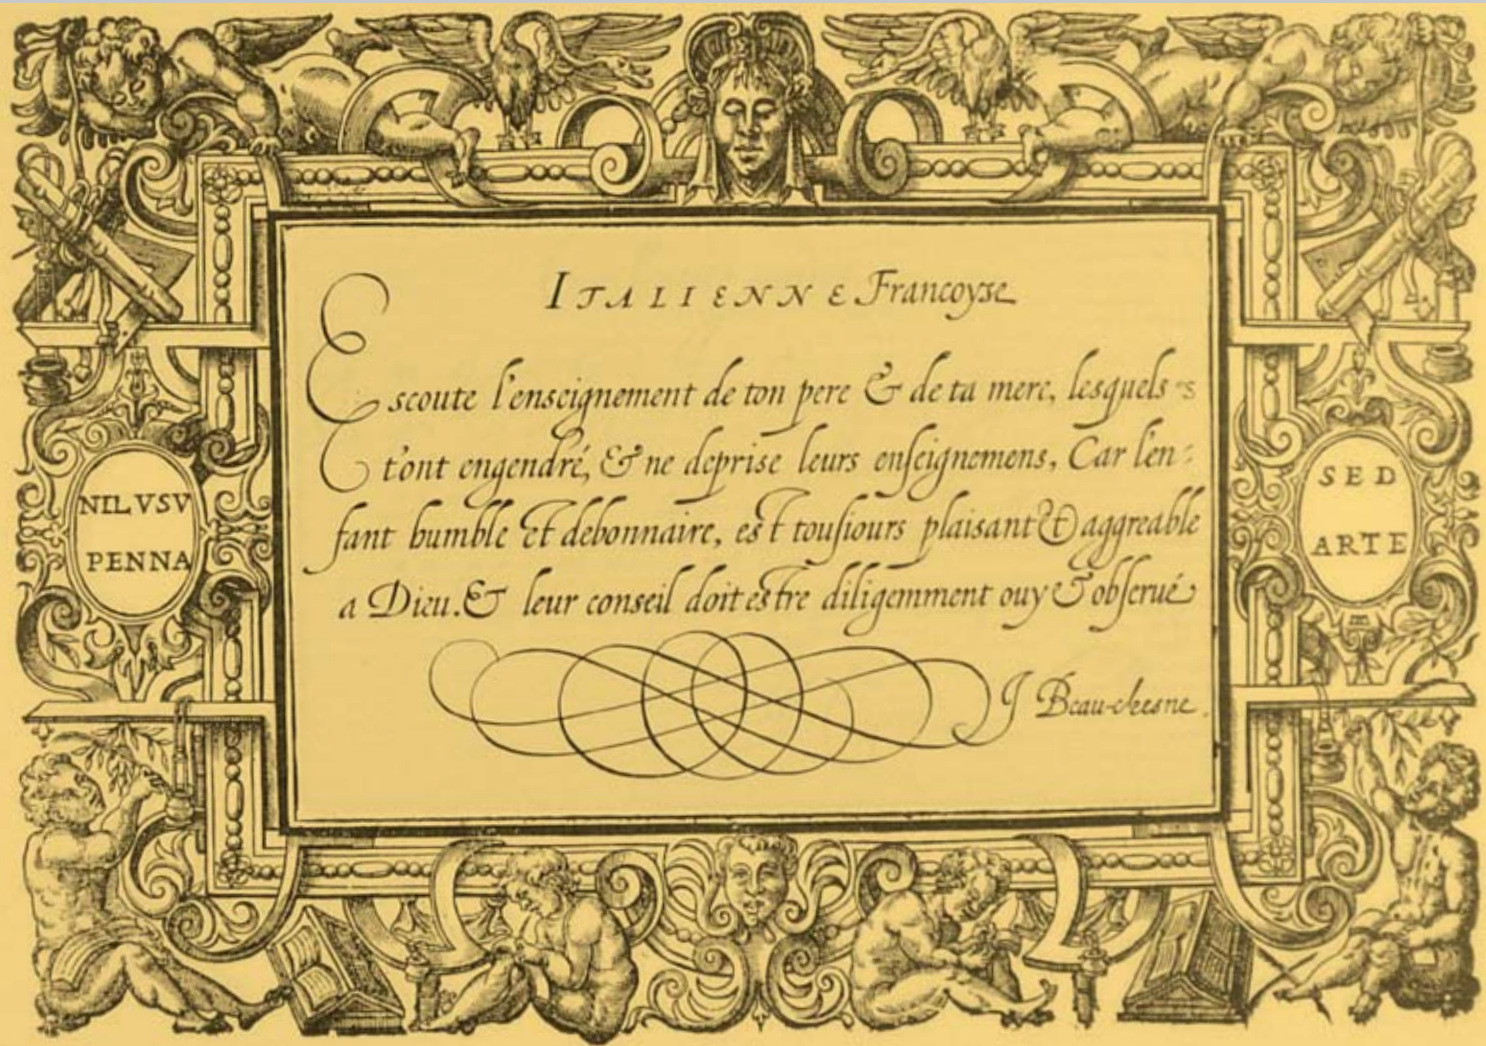 ITALIENNE Francoyse
Escoute l'enseignement de ton pere & de ta mere, lesquels
t'ont engendré, & ne deprise leurs enseignemens, Car l'en:
fant humble et debonnaire, est tousiours plaisant & aggreable
a Dieu. & leur conseil doit estre diligemment ouy & obserué
J Beau-chesne.
NIL VSV
PENNA
SED
ARTE